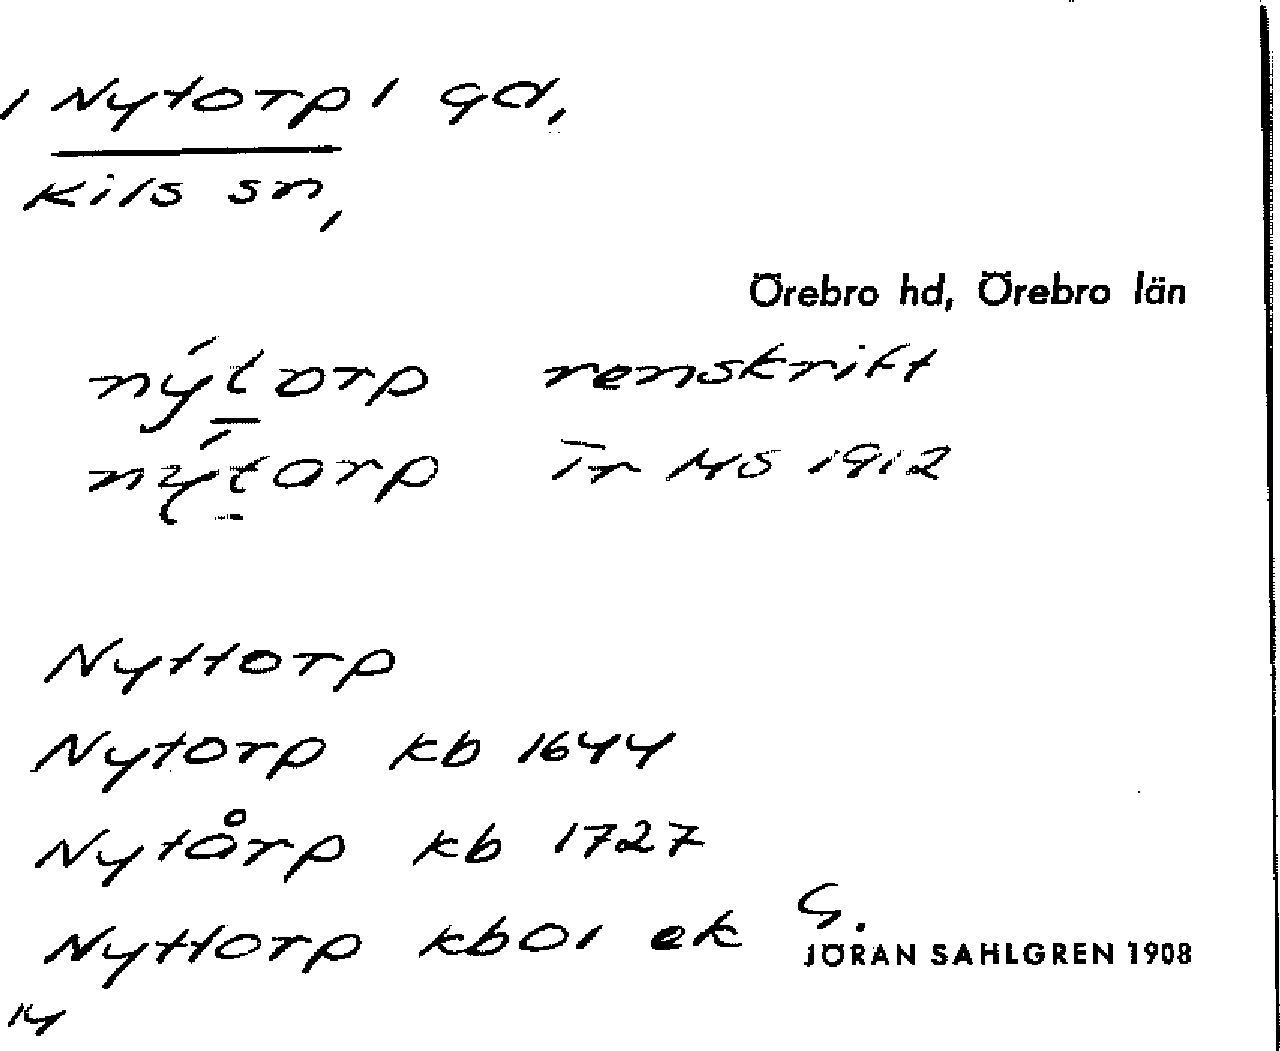 / Nytorp / gd,
Kils sn,
Örebro hd, Örebro län
nýtorp renskrift
nýtorp Ir MS 1912
Nyttorp
Nytorp kb 1644
Nytårp kb 1727
Nyttorp kb01 ek G.
JÖRAN SAHLGREN 1908
14